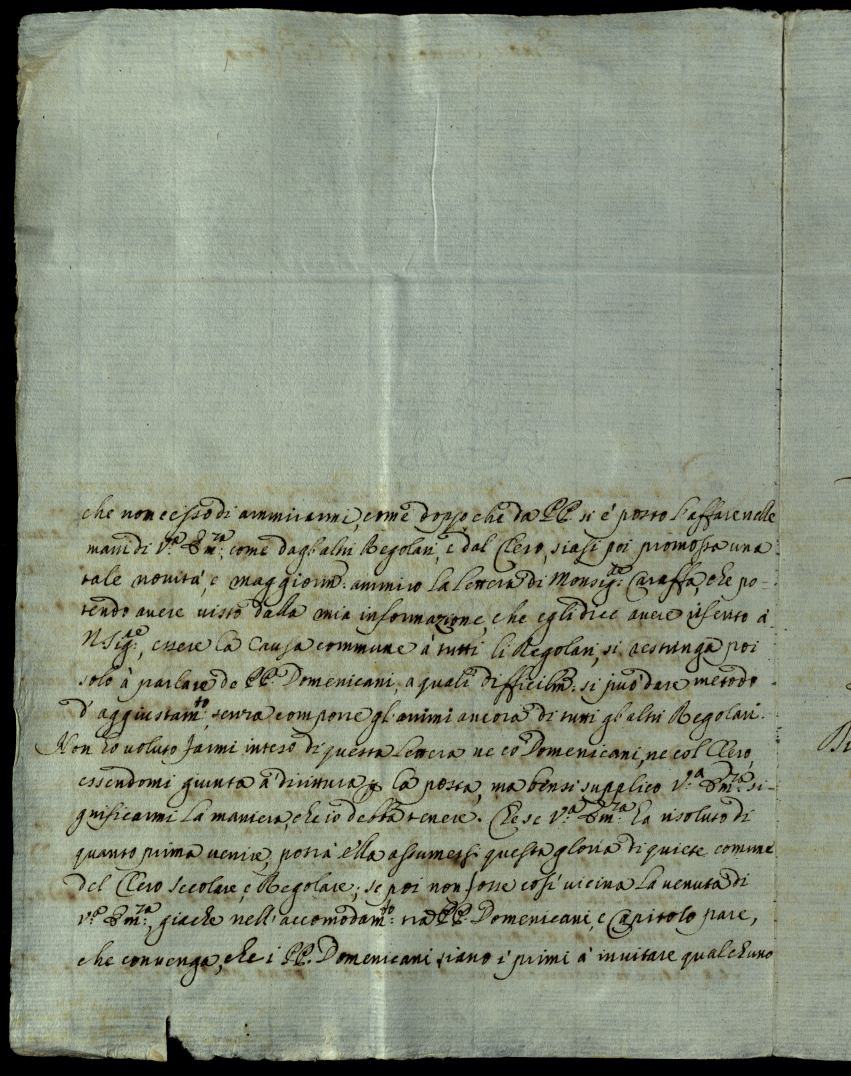 che non cesso di ammirarmi, come doppo che da PP. si è posto l'affare nelle
mani di V.ª Em.za, come dagl'altri Regolari, e dal Clero, siasi poi promossa una
tale novità, e maggiorm. ammiro la lettera di Monsig. Caraffa, che po-
tendo avere visto dalla mia informazione, che egli dice avere riferito à
N. Sig.re, essere la causa commune à tutti li Regolari, si restringa poi
solo à parlare de PP. Domenicani, a quali difficilm. si può dare metodo
d'aggiustam.to, senza comporre gl'animi ancora di tutti gl'altri Regolari.
Non hò voluto farmi inteso di questa lettera ne co Domenicani, ne col Clero,
essendomi giunta a dirittura p la posta, ma bensi supplico V.ª Em.za si-
gnificarmi la maniera, che io debba tenere. Che se V.ª Em.za ha risoluto di
quanto prima venire, potrà ella assumersi questa gloria di quiete comune
del Clero secolare, e Regolare; se poi non fosse così vicina la venuta di
V.ª Em.za, giache nell'accomodam.to trà PP. Domenicani, e Capitolo pare,
che convenga, che i PP. Domenicani siano i primi à invitare qualchuno